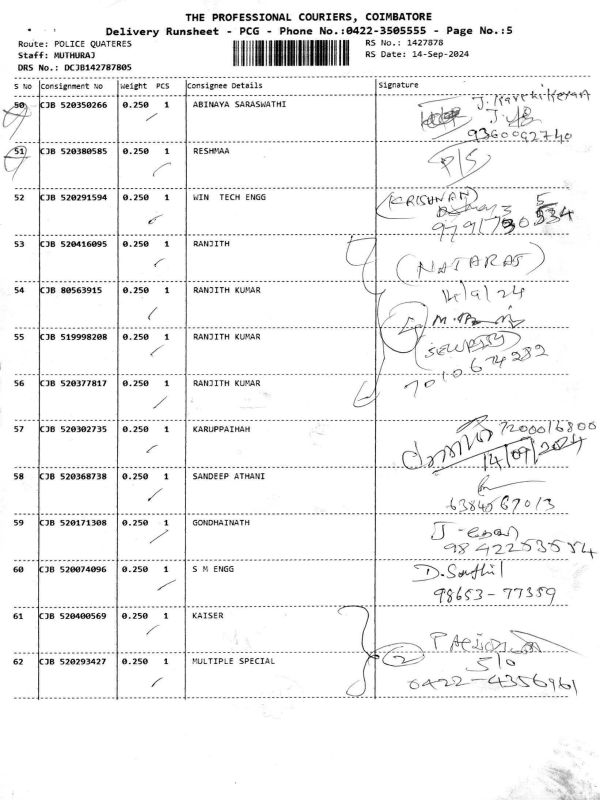 THE PROFESSIONAL COURIERS, COIMBATORE
Delivery Runsheet - PCG - Phone No.:0422-3505555 - Page No.:5
Route: POLICE QUATERES
RS No.: 1427878
Staff: MUTHURAJ
RS Date: 14-Sep-2024
DRS No.: DCJB142787805
S No Consignment No Weight PCS Consignee Details Signature
50 CJB 520350266 0.250 1 ABINAYA SARASWATHI
J. Karthikeyan
9360092740
51 CJB 520380585 0.250 1 RESHMAA
P/S
52 CJB 520291594 0.250 1 WIN TECH ENGG
(KRISHNAN)
53 CJB 520416095 0.250 1 RANJITH
(NATARAJ)
54 CJB 80563915 0.250 1 RANJITH KUMAR
14/9/24
55 CJB 519998208 0.250 1 RANJITH KUMAR
(SECURITY)
7010674282
56 CJB 520377817 0.250 1 RANJITH KUMAR
57 CJB 520302735 0.250 1 KARUPPAIHAH
7200016800
14/09/2024
58 CJB 520368738 0.250 1 SANDEEP ATHANI
6384067013
59 CJB 520171308 0.250 1 GONDHAINATH
60 CJB 520074096 0.250 1 S M ENGG
D. Senthil
98653-77359
61 CJB 520400569 0.250 1 KAISER
62 CJB 520293427 0.250 1 MULTIPLE SPECIAL
2
S/O
0422-4356961